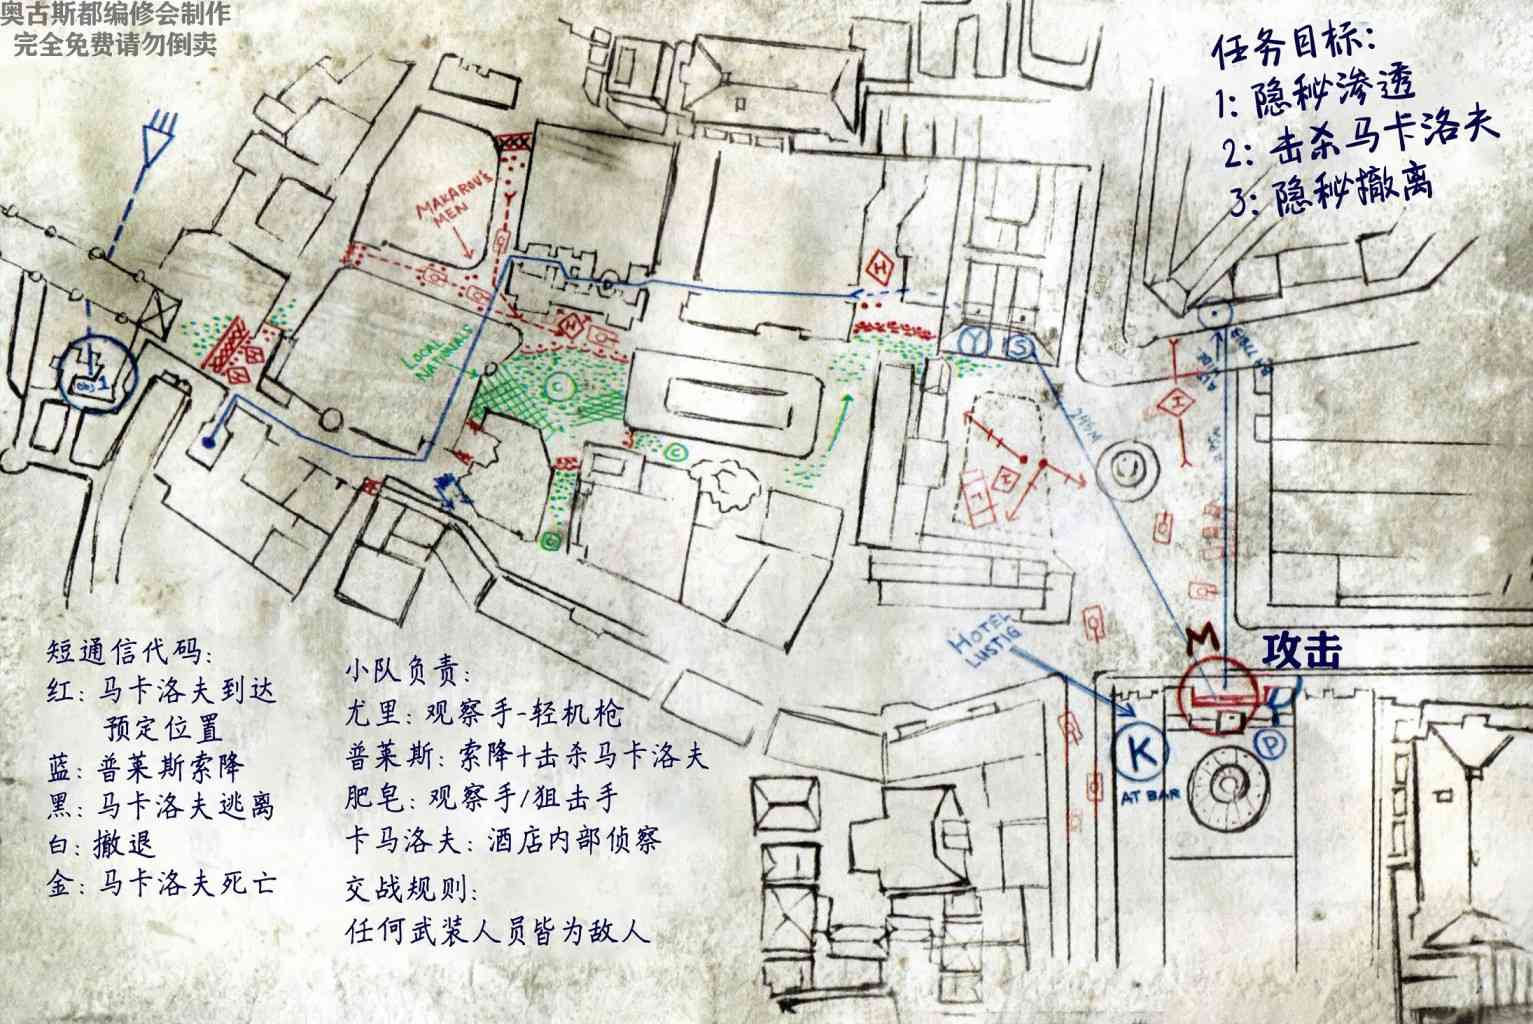 奥古斯都编修会制作
完全免费请勿倒卖
任务目标:
1: 隐秘渗透
2: 击杀马卡洛夫
3: 隐秘撤离
MAKAROV'S
MEN
LOCAL
NATIONALS
H
H
H
H
C
C
C
Y
S
246M
1
HOTEL
LUSTIG
M
攻击
K
AT BAR
P
短通信代码:
红: 马卡洛夫到达
预定位置
蓝: 普莱斯索降
黑: 马卡洛夫逃离
白: 撤退
金: 马卡洛夫死亡
小队负责:
尤里: 观察手-轻机枪
普莱斯: 索降+击杀马卡洛夫
肥皂: 观察手/狙击手
卡马洛夫: 酒店内部侦察
交战规则:
任何武装人员皆为敌人